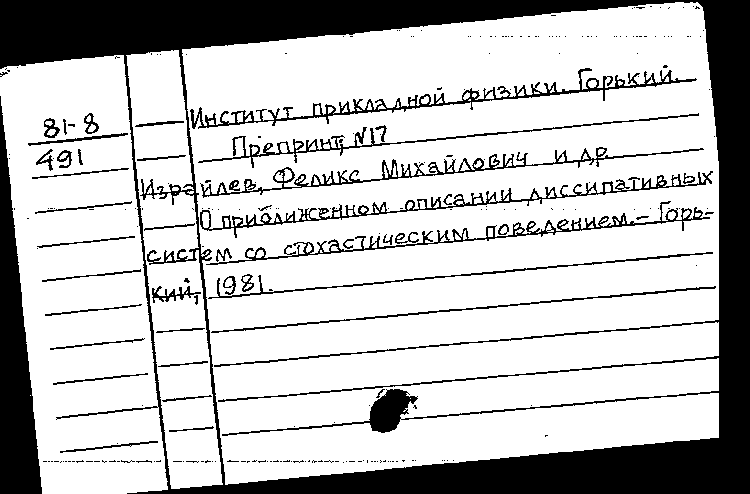 81-8
491
Институт прикладной физики. Горький.
Препринт, N17
Израйлев, Феликс Михайлович и др.
О приближенном описании диссипативных
систем со стохастическим поведением.- Горь-
кий, 1981.